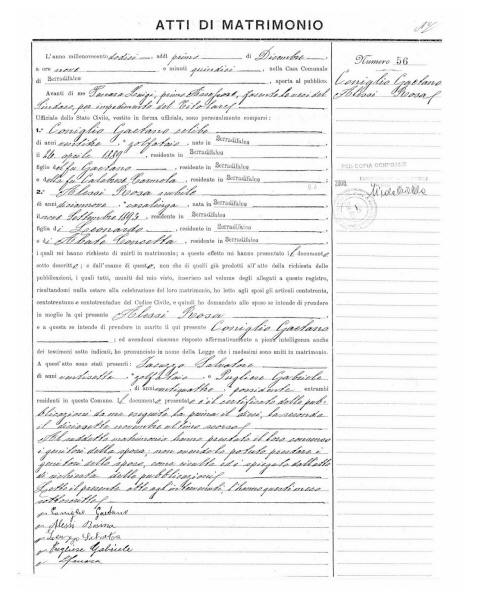 ATTI DI MATRIMONIO
L'anno millenovecento dodici, addì primo di Dicembre,
a ore nove e minuti quindici, nella Casa Comunale
di Serradifalco, aperta al pubblico.
Avanti di me
Sindaco, per impedimento del Titolare,
Uffiziale dello Stato Civile, vestito in forma uffiziale, sono personalmente comparsi:
1.° Coniglio Gaetano celibe
di anni ventitre, zolfataio, nato in Serradifalco
il 26 aprile 1889, residente in Serradifalco
figlio del fu Gaetano, residente in Serradifalco
e della fu Calabrese Carmela, residente in Serradifalco
2.° Alessi Rosa nubile
di anni diciannove, casalinga, nata in Serradifalco
Settembre 1893, residente in Serradifalco
figlia di Leonardo, residente in Serradifalco
e di Abate Concetta, residente in Serradifalco
i quali mi hanno richiesto di unirli in matrimonio; a questo effetto mi hanno presentato il documento
sotto descritto; e dall'esame di questo, non che di quelli già prodotti all'atto della richiesta delle
pubblicazioni, i quali tutti, muniti del mio visto, inserisco nel volume degli allegati a questo registro,
risultandomi nulla ostare alla celebrazione del loro matrimonio, ho letto agli sposi gli articoli centotrenta,
centotrentuno e centotrentadue del Codice Civile, e quindi ho domandato allo sposo se intende di prendere
in moglie la qui presente Alessi Rosa
e a questa se intende di prendere in marito il qui presente Coniglio Gaetano
; ed avendomi ciascuno risposto affermativamente a piena intelligenza anche
dei testimoni sotto indicati, ho pronunciato in nome della Legge che i medesimi sono uniti in matrimonio.
A quest'atto sono stati presenti: Salvatore
di anni ventisette, zolfataio, e Pugliese Gabriele
di anni ventiquattro possidente entrambi
residenti in questo Comune. Il documento presentato è il certificato delle pub-
blicazioni da me eseguite la prima il dieci, la seconda
il diciassette novembre ultimo scorso.
Al suddetto matrimonio hanno prestato il loro consenso
i genitori della sposa; non avendolo potuto prestare i
genitori dello sposo, come risulta ed è spiegato dall'atto
di richiesta delle pubblicazioni.
Letto il presente atto agli intervenuti, l'hanno questi meco
sottoscritto.
Coniglio Gaetano
Alessi Rosina
Pugliese Gabriele
Numero 56
Coniglio Gaetano
Alessi Rosa
PER COPIA CONFORME